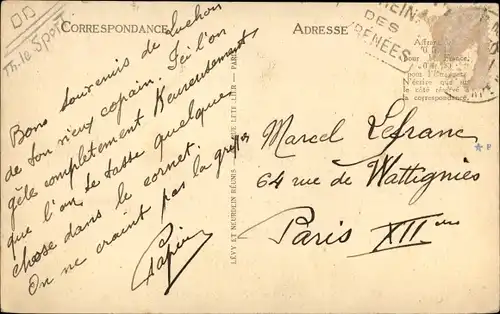 Th. le Sport
CORRESPONDANCE
Bons souvenirs de Luchon
de ton vieux copain. Ici l'on
gèle complètement Heureusement
que l'on se tasse quelque
chose dans le cornet.
On ne craint pas la grippe
Papin
LÉVY ET NEURDEIN RÉUNIS
PARIS
ADRESSE
REINE
DES
PYRÉNÉES
pour la France,
pour l'Étranger
N'écrire que sur
le côté réservé à
la correspondance.
Marcel Lefranc
64 rue de Wattignies
Paris XIIème